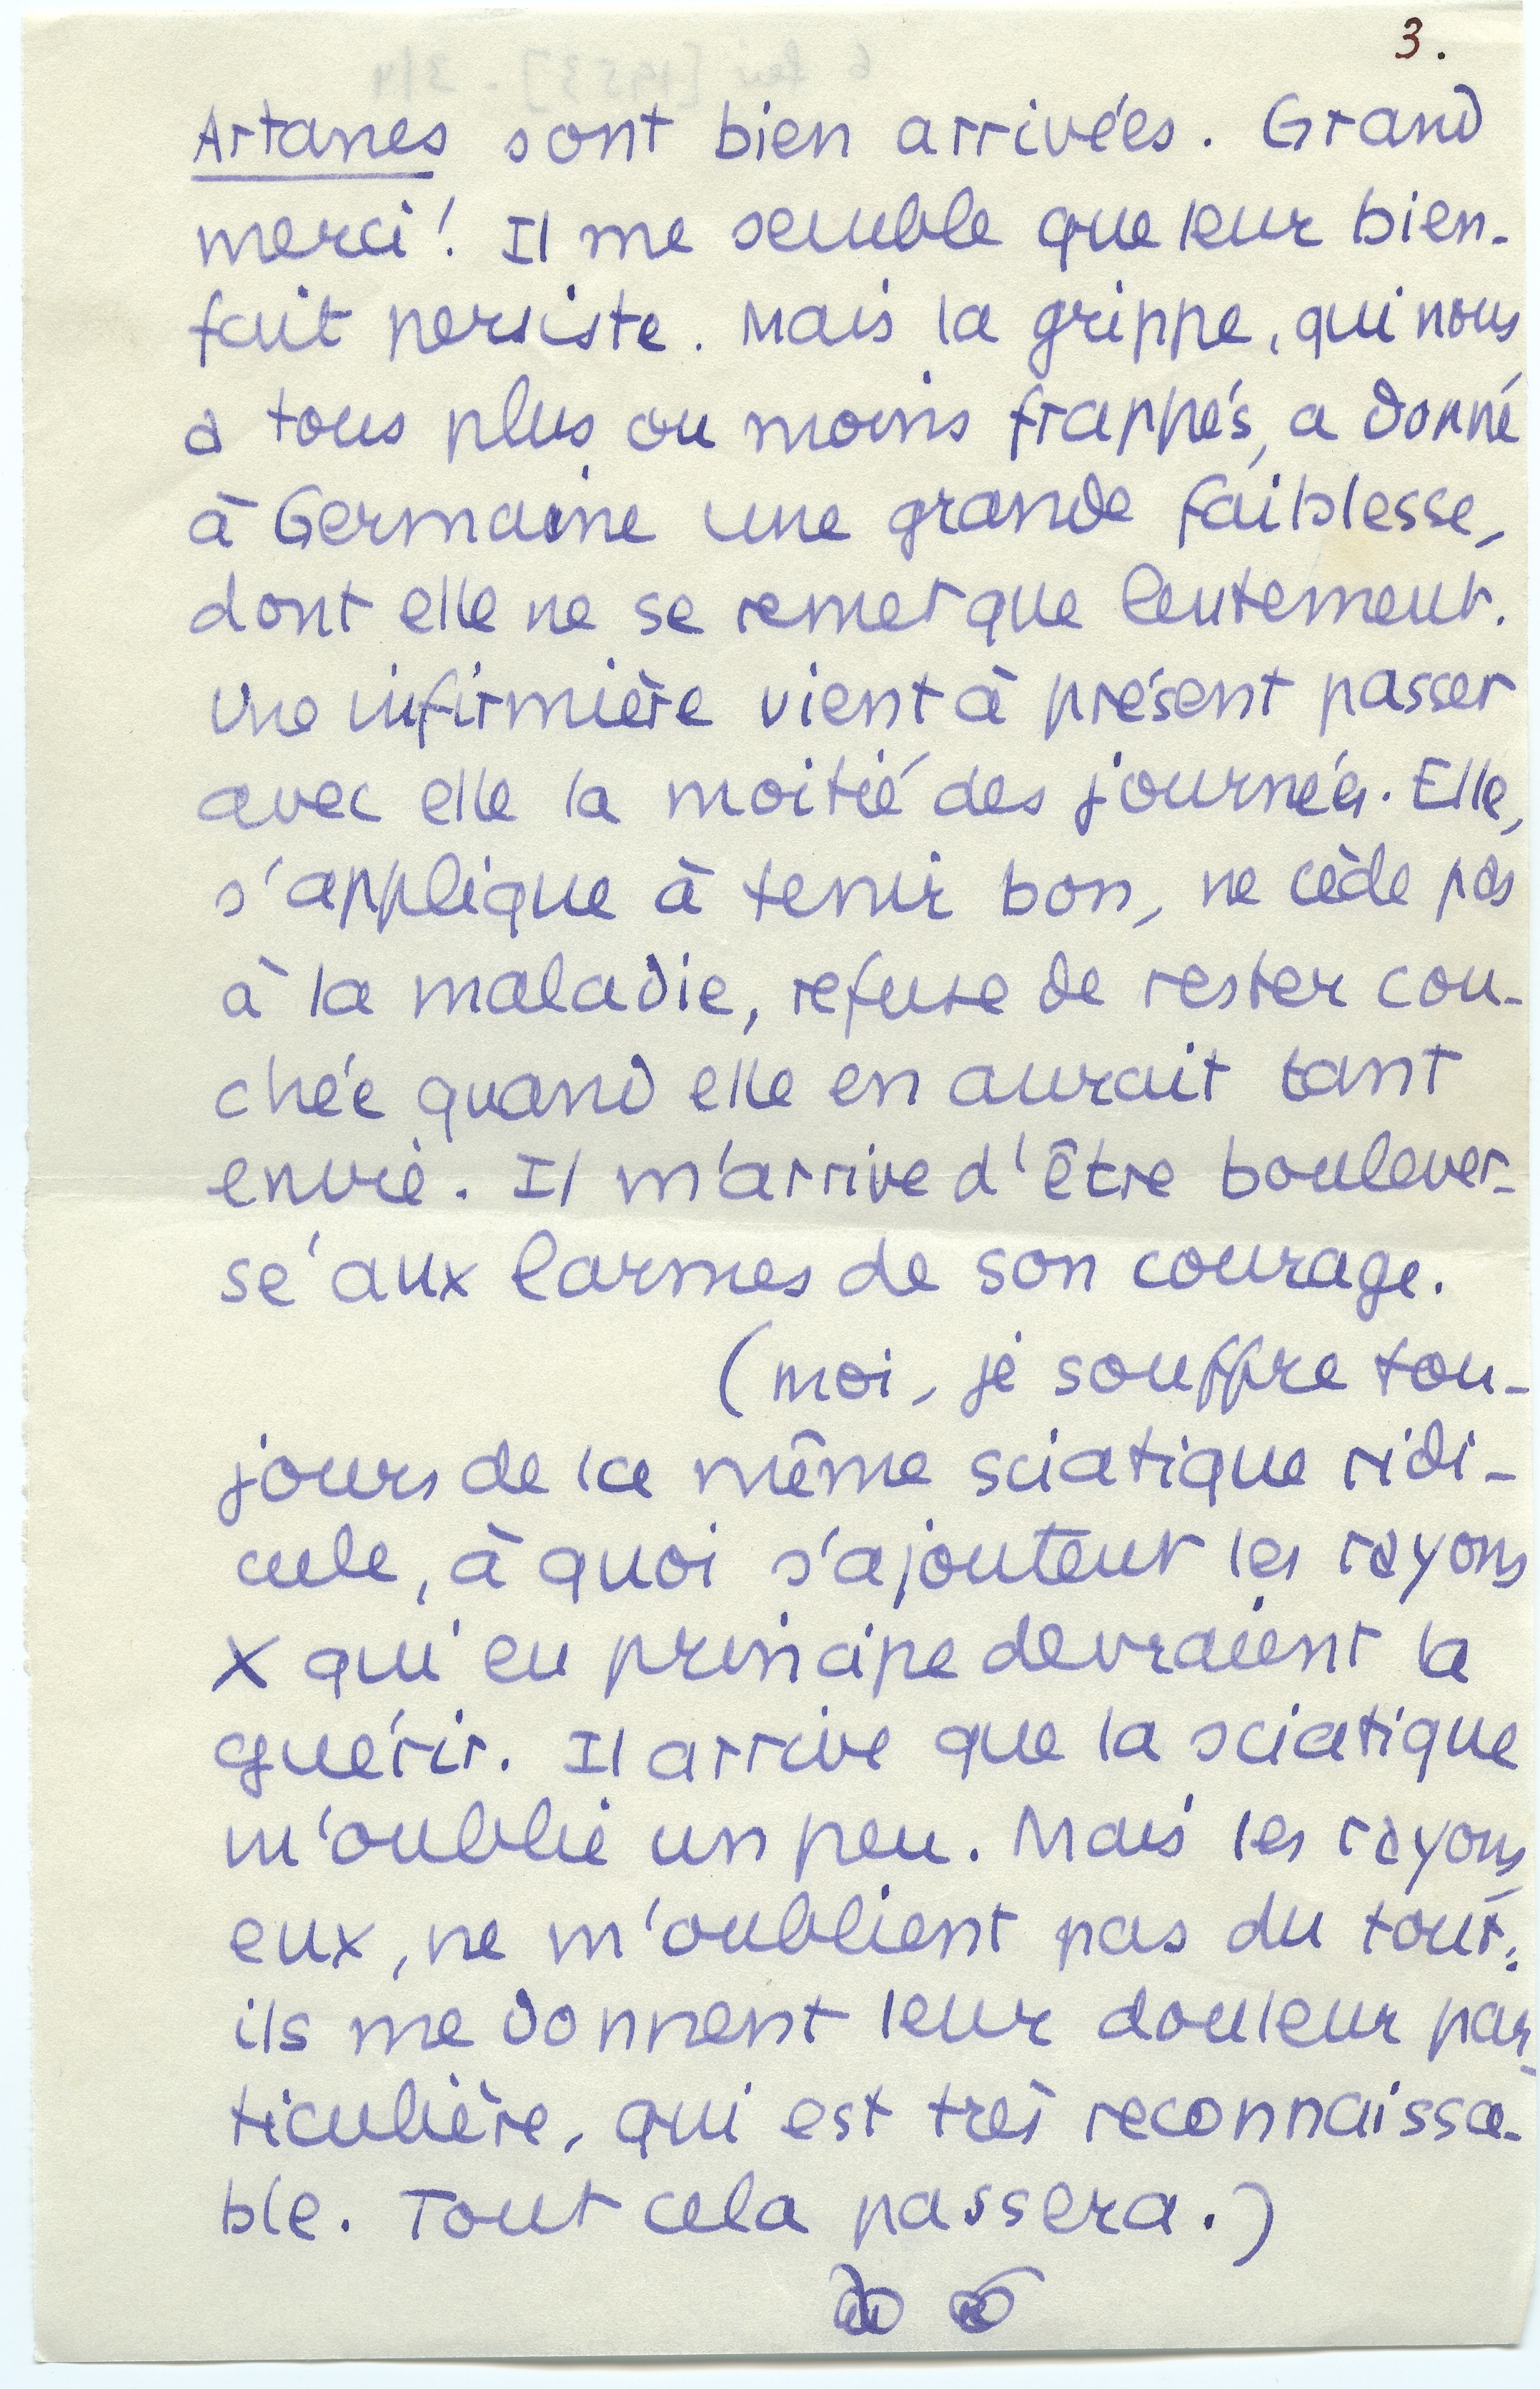 3.
Artanes sont bien arrivées. Grand
merci! Il me semble que leur bien-
fait persiste. Mais la grippe, qui nous
a tous plus ou moins frappés, a donné
à Germaine une grande faiblesse,
dont elle ne se remet que lentement.
Une infirmière vient à présent passer
avec elle la moitié des journées. Elle,
s'applique à tenir bon, ne cède pas
à la maladie, refuse de rester cou-
chée quand elle en aurait tant
envie. Il m'arrive d'être boulever-
sé aux larmes de son courage.
(moi, je souffre tou-
jours de la même sciatique ridi-
cule, à quoi s'ajoutent les rayons
X qui en principe devraient la
guérir. Il arrive que la sciatique
m'oublie un peu. Mais les rayons,
eux, ne m'oublient pas du tout:
ils me donnent leur douleur par-
ticulière, qui est très reconnaissa-
ble. Tout cela passera.)